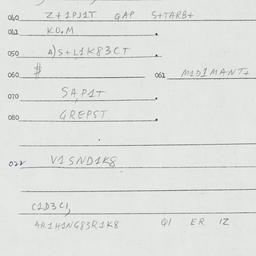 040 Z+1PJ1T QAP S+TARB+
041 KO.M
050 4)S+L1K83CT
060 # 061 M1D1MANT+
070 SA,P1T
080 GREPST
022 V1SND1K8
C1D3C1,
4R1H1NG83R1K8 Q1 ER IZ